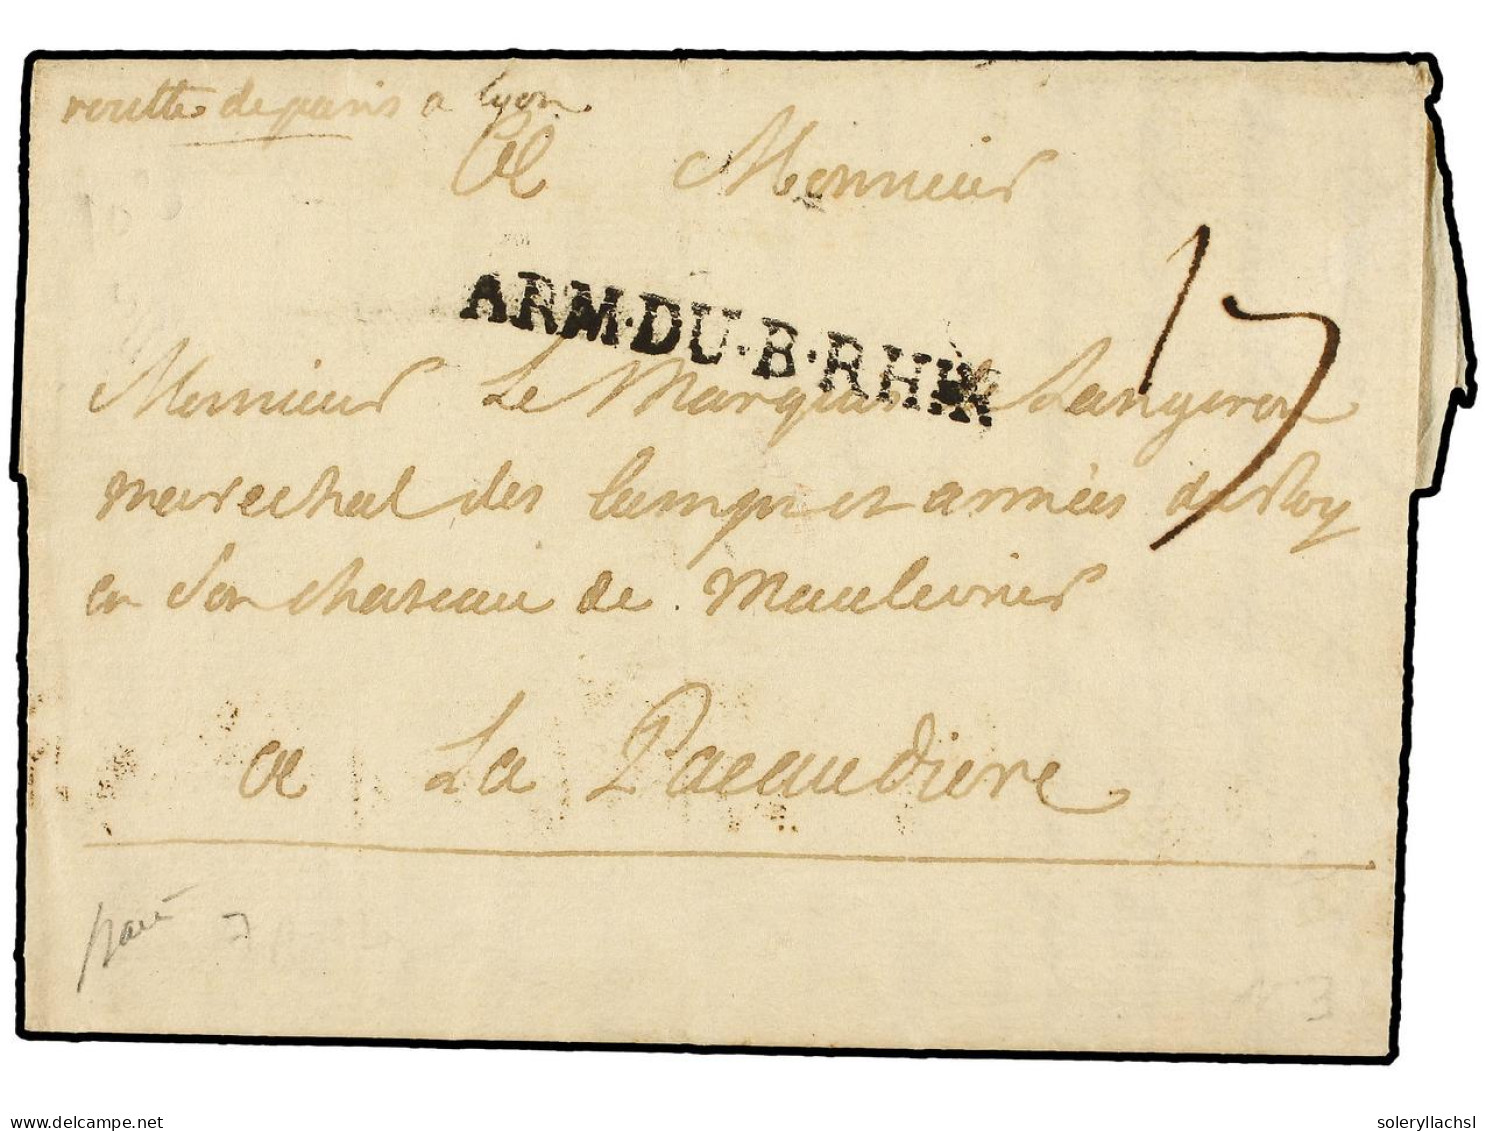 routte de paris a lyon
A Monsieur
ARM·DU·B·RHIN
17
Monsieur Le Marquis de Langeron
marechal des camps et armées du Roy
en son chateau de Maulevrier
a La Pacaudiere
7
3
delcampe.net
soleryllachsl